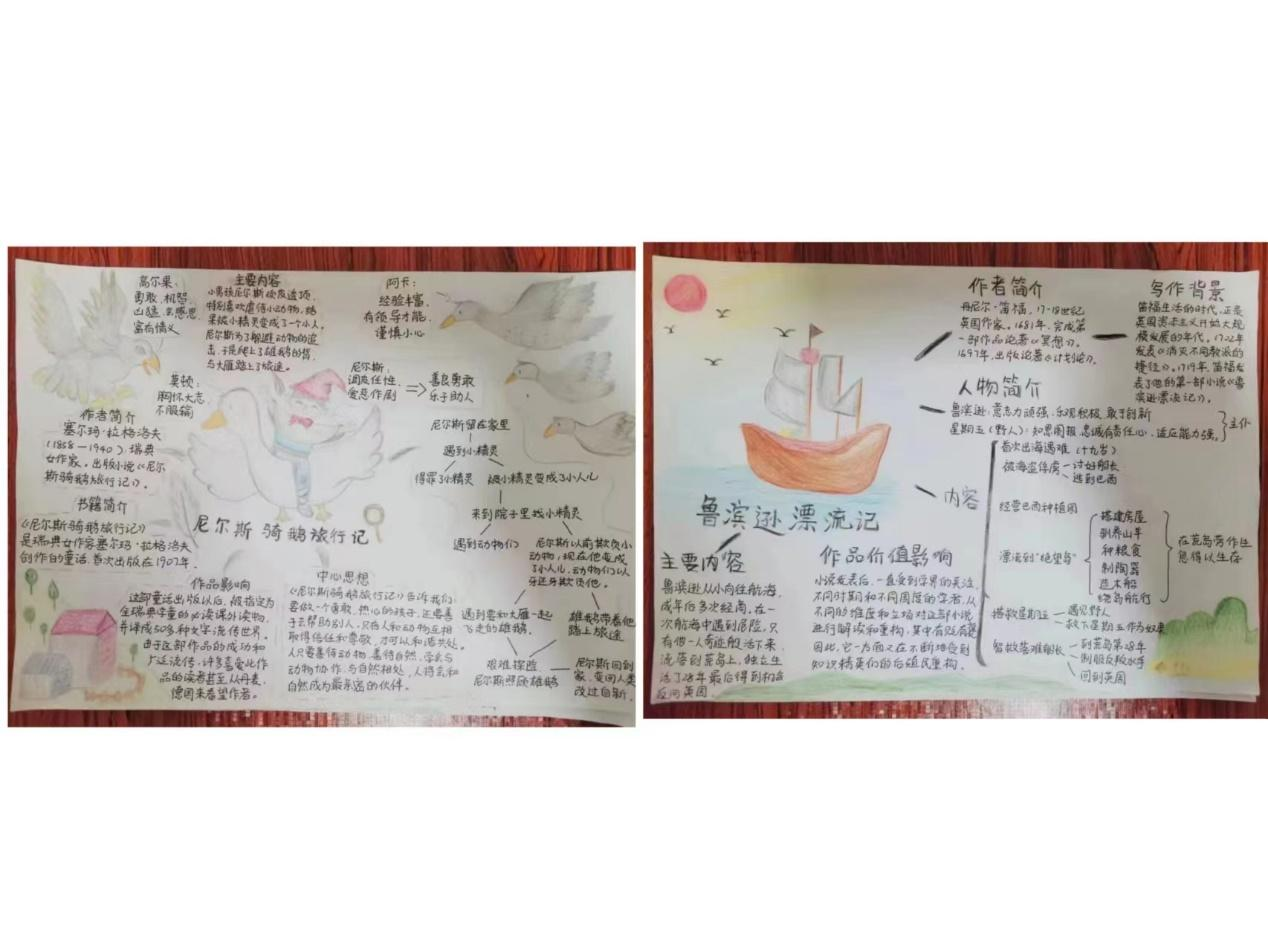 高尔果：
勇敢、机智
凶猛、知感恩
富有情义
主要内容
小男孩尼尔斯 皮
特别喜欢虐待小动物，结
果被小精灵变成了一个小人。
尼尔斯为了躲避动物的追
击，于是爬上了雄鹅的背，
与大雁踏上了旅途。
阿卡：
经验丰富，
有领导才能，
谨慎小心
莫顿：
胸怀大志
不服输
尼尔斯：
调皮任性、
爱恶作剧
=>
善良勇敢
乐于助人
作者简介
塞尔玛·拉格洛夫
（1858－1940）瑞典
女作家。出版小说《尼尔
斯骑鹅旅行记》。
书籍简介
《尼尔斯骑鹅旅行记》
是瑞典女作家塞尔玛·拉格洛夫
创作的童话，首次出版在1907年。
尼尔斯骑鹅旅行记
尼尔斯留在家里
遇到小精灵
得罪了小精灵 被小精灵变成了小人儿
来到院子里找小精灵
遇到动物们
尼尔斯以前欺负小
动物，现在他变成
了小人儿，动物们以
牙还牙欺负他。
遇到要和大雁一起
飞走的雄鹅。
雄鹅带着他
踏上旅途
艰难探险
尼尔斯照顾雄鹅
尼尔斯回到
家，变回人类
改过自新。
作品影响
这部童话出版以后，被指定为
全瑞典学童的必读课外读物，
并译成50多种文字，流传世界。
由于这部作品的成功和
广泛流传，许多喜爱此作
品的读者甚至从丹麦、
德国来看望作者。
中心思想
《尼尔斯骑鹅旅行记》告诉我们：
要做一个勇敢、热心的孩子，还要善
于去帮助别人。只有人和动物互相
取得信任和尊敬，才可以和谐共处。
人只要善待动物，善待自然，学会与
动物协作，与自然相处，人将会和
自然成为最亲密的伙伴。
作者简介
丹尼尔·笛福，17-18世纪
英国作家。1681年，完成第
一部作品论著《冥想》。
1697年，出版论著《计划论》。
写作背景
笛福生活的时代，正是
英国资本主义开始大规
模发展的年代。1702年
发表《消灭不同教派的
捷径》。1719年，笛福发
表了他的第一部小说《鲁
滨逊漂流记》。
人物简介
鲁滨逊：意志力顽强、乐观积极、敢于创新
星期五（野人）：知恩图报、忠诚有责任心、适应能力强。
}主仆
内容
首次出海遇难（十九岁）
被海盗俘虏
讨好船长
逃到巴西
经营巴西种植园
漂流到“绝望岛”
搭建房屋
驯养山羊
种粮食
制陶器
造木船
绕岛航行
在荒岛劳作生
息得以生存
拯救星期五
遇见野人
救下星期五作为奴隶
智救落难船长
到荒岛第28年
制服反叛水手
回到英国
鲁滨逊漂流记
主要内容
鲁滨逊从小向往航海，
成年后多次经商。在一
次航海中遇到危险，只
有他一人奇迹般活下来，
流落到荒岛上，独立生
活了28年最后得到机会
返回英国。
作品价值影响
小说发表后，一直受到学界的关注，
不同时期和不同国度的学者，从
不同的维度和立场对这部小说
进行解读和重构，其中有贬有褒
因此，它一方面又在不断地受到
知识精英们的后殖民重构。